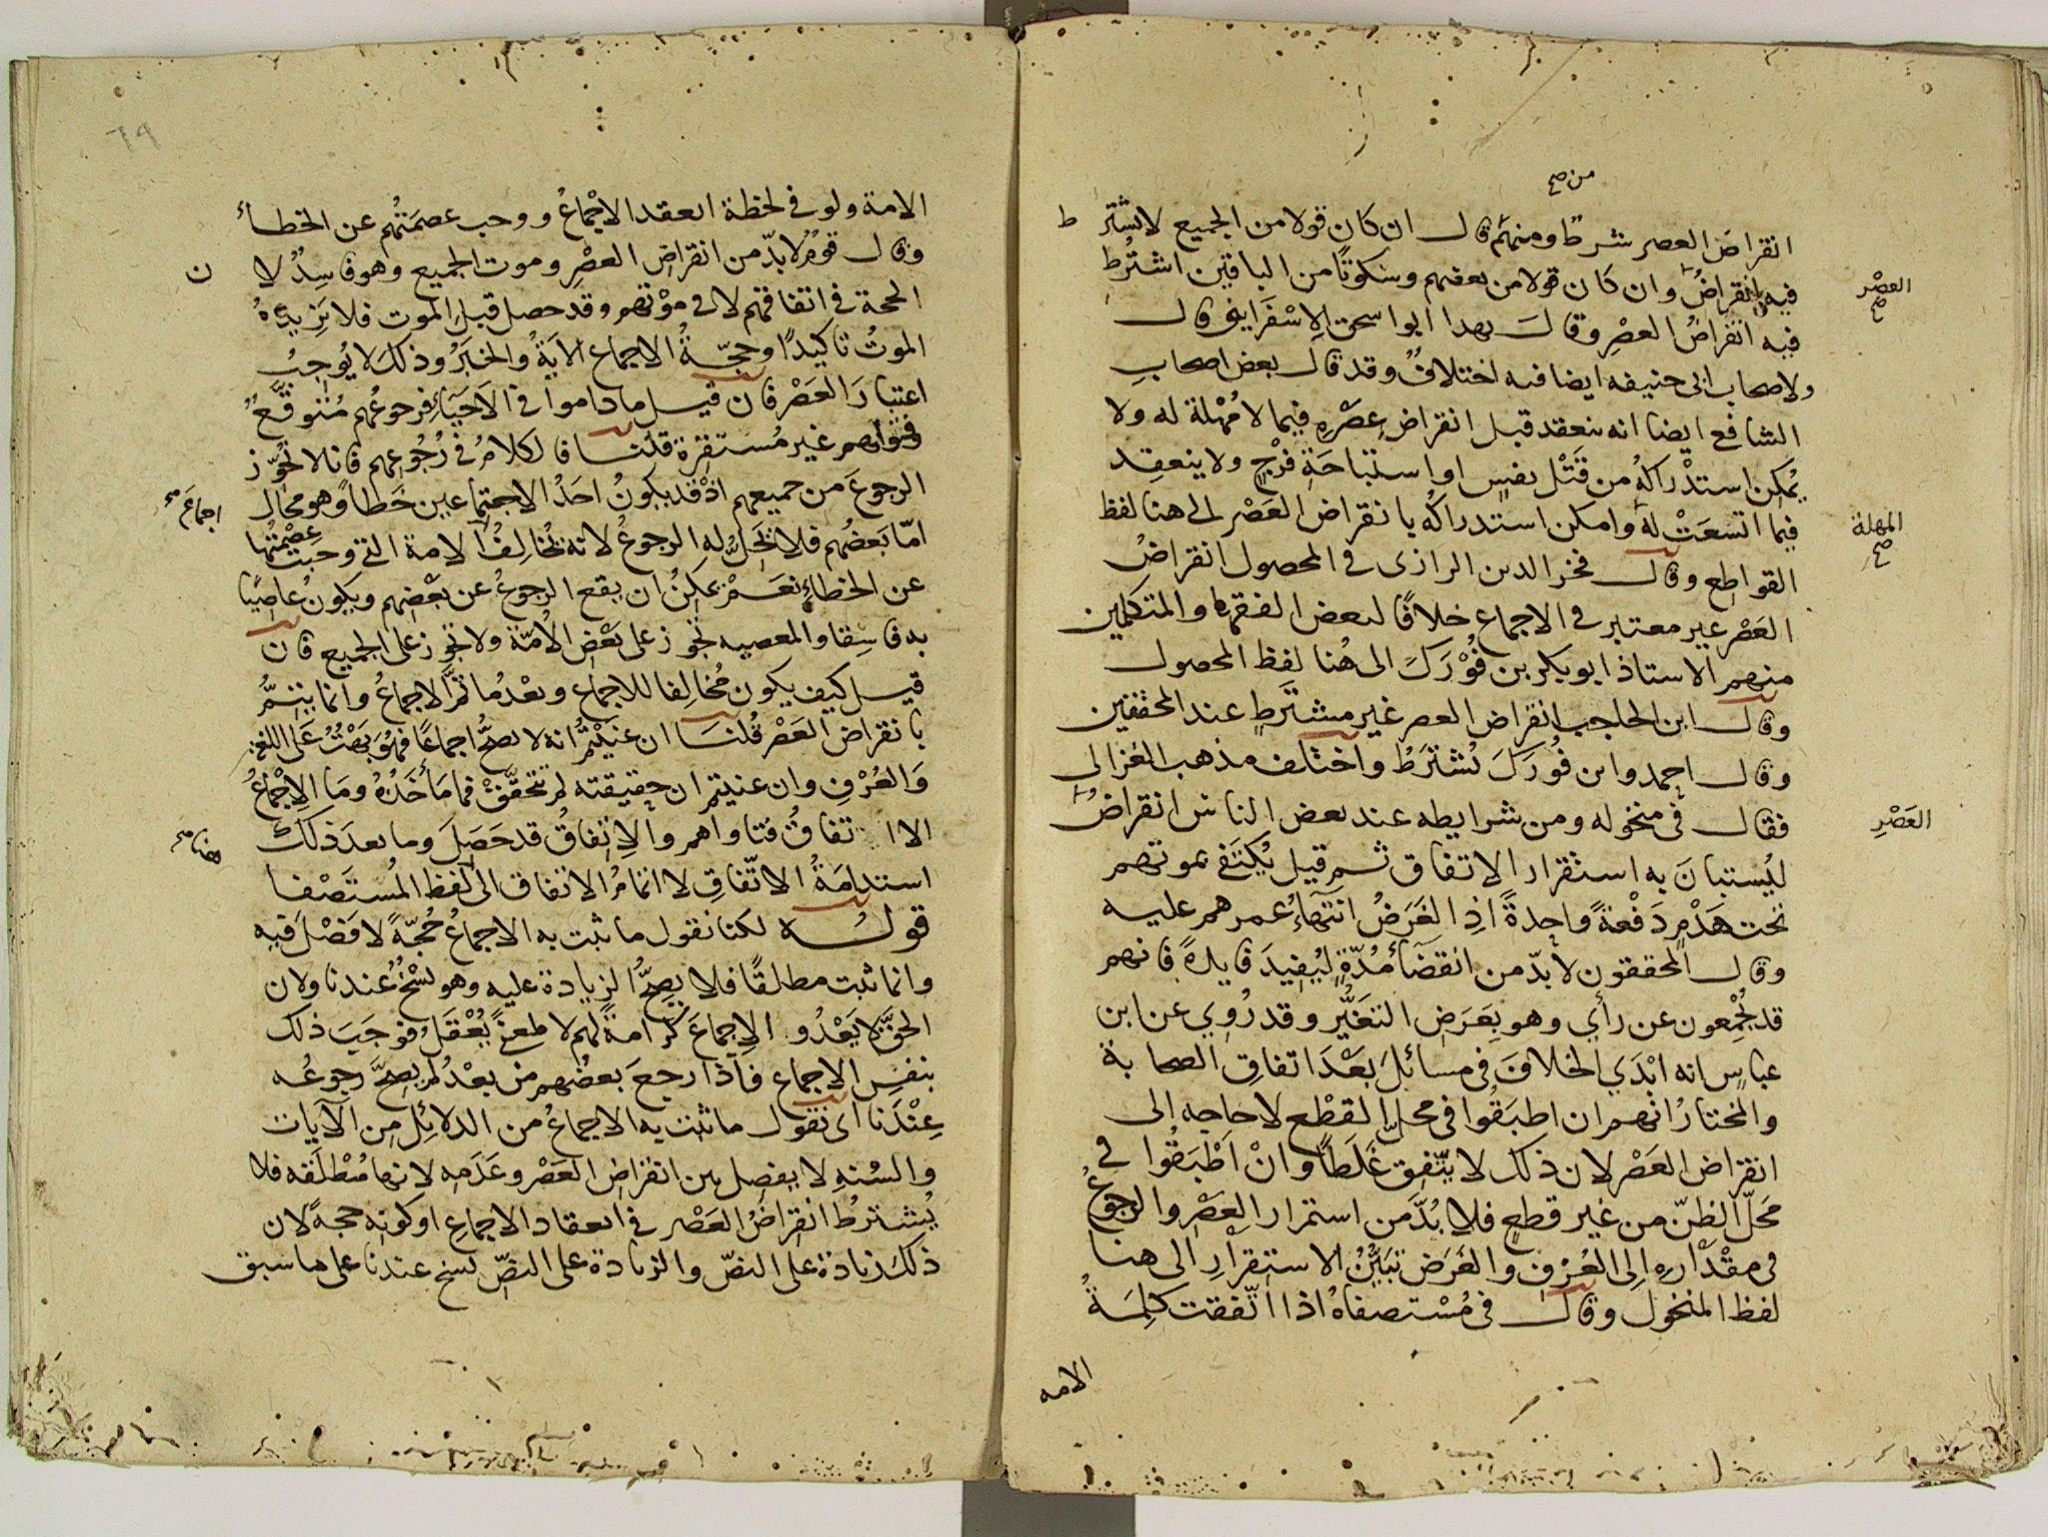 من صح
انقراض العصر شرط ومنهم قال ان كان قولا من الجميع لا يشترط
فيه انقراض وان كان قولا من بعضهم وسكوتًا من الباقين اشترط
العصْر صح
فيه انقراضُ العصرِ وقالَ بهذا ابو اسحق الاسْفَراينى قال
ولاصحاب ابى حنيفه ايضا فيه اختلافٌ وقد قال بعض اصحابِ
الشافع ايضا انه ينعقد قبل انقراض عصْرِهِ فيما لا مُهْلة له ولا
يُمكِن استدْراكهُ من قَتْل نفسٍ او استباحَةِ فرْجٍ ولا ينعقِد
فيما اتسعَتْ له وامكن استدراكُه بانقراض العَصْر الى هنا لفظ
المهلة صح
القواطع وقال فخر الدين الرازى فى المحصول انقراضُ
العَصْر غير معتبر فى الاجماع خلافًا لبعض الفقهاء والمتكلمين
منهم الاستاذ ابو بكر بن فُوْرَكَ الى هُنا لفظ المحصول
وقال ابن الحاجب انقراض العصر غير مشتَرطٍ عند المحققين
وقال احمد وابن فُورَكَ يُشترَطُ واختلف مذهب الغزالى
فقال فى منخوله ومن شرايطه عند بعض الناس انقراضُ
العَصْرِ
ليُستبانَ به استقرار الاتفاق ثم قيل يُكتَفى بموتهم
تحت هَدْمٍ دَفْعةً واحِدةً اذِ الغَرَضُ انتهَاءُ عمرهم عليه
وقال المحققون لا بدّ من انقضآء مُدّةٍ ليُفِيدَ فايدةً فانهم
قد يُجْمِعون عن رأي وهو بِعَرَضِ التغيُّر وقد رُوِي عن ابن
عباسٍ انه ابْدَي الخلافَ فى مسائلَ بَعْدَ اتفاقِ الصحابة
والمختارُ انهم ان اطبَقُوا فى محلّ القطْع لا حاجه الى
انقراض العَصْر لان ذلك لا يتّفِق غَلَطًا وانْ اَطْبَقُوا فى
مَحَلّ الظنّ من غير قطع فلا بُدَّ من استمرار العَصْر والرجوعُ
فى مقْدَاره اِلى العُرْفِ والغَرَض تبَيُّنُ الاستقرارِ الى هنا
لفظ المنخول وقال فى مُسْتصفاهُ اذا اتّفقت كلِمَةُ
الامه
٦٩
الامة ولو فى لحظة انعقد الاجْماعُ ووجب عصمَتُهم عن الخطأ
وقال قومٌ لا بدّ من انقراض العصْرِ وموت الجميع وهو فاسِدٌ لا
ن
الحجة فى اتفاقهم لا فى موْتهم وقد حصل قبل الموت فلا يَزِيدُهُ
الموتُ تاكيدًا وحجّةُ الاجماع الاَيَةُ والخبَرُ وذلكَ لا يُوجِبُ
اعتبارَ العَصْر فان قيل ما داموا فى الاَحْيَاءِ فرجوعُهم مُتَوقَّعٌ
وفتواهم غير مُستقِرّة قلنا فالكلامُ فى رُجُوعِهم فانا لا نجُوّز
الرجوعَ من جميعهم اذْ قد يكونُ احَدُ الاجتماعين خَطأً وهو محال
اجماعَين صح
امّا بَعضُهم فلا يحَلُّ له الرجوعُ لانه يُخالِفُ الامة التى وجبت عصْمتُها
عن الخطاءِ نعَمْ يمكِنُ ان يقع الرجوعُ عن بَعْضهم ويكون عاصِيًا
به فاسِقا والمعصيه تجوز على بَعْض الاُمّة ولا تجوز على الجميع فان
قيل كيف يكون مُخالِفا للاجماع وبعْدُ ما تمَّ الاجماعُ وانما يتِمُّ
بانقراض العَصْر قُلنَا ان عنَيْتمُ انه لا يصحُّ اجماعًا فهُوَ بَهْتٌ عَلى اللغة
وَالعُرْفِ وان عنيتم ان حقيقته لم تتحقَّقْ فما مَأخَذُهُ ومَا الاِجْماعُ
الا اتفاقُ فتاواهم والاِتفاقُ قد حَصَلَ وما بعدَ ذلك
استدامَةُ الاتّفاقِ لا اتمامُ الاتفاق الى لفظ المُستَصْفا
هنا صح
قوله لكنا نقول ما ثبت به الاجماعُ حُجّةً لا فَصْلَ فيه
وانما ثبت مطلقًا فلا يصِحُّ الزيادة عليه وهو نسْخٌ عندنا ولان
الحقَّ لا يَعْدُو الاِجماعَ كرَامةً لهم لا لمعنًى يُعْقَلُ فوجَبَ ذلك
بنفسِ الاجماع فاذا رجعَ بعضُهم من بعْدُ لم يصِحَّ رجوعُه
عِنْدَنا اى نقول ما ثبت به الاجماعُ من الدلائِل من الآيات
والسُنهِ لا يفصِل بين انقراض العَصْر وعَدَمه لانها مُطْلَقه فلا
يُشترطُ انقراضُ العَصْر فى انعقاد الاجماع او كونِه حجةً لان
ذلك زيادة على النصّ والزيادة على النصّ نسخ عندنا على ما سبق